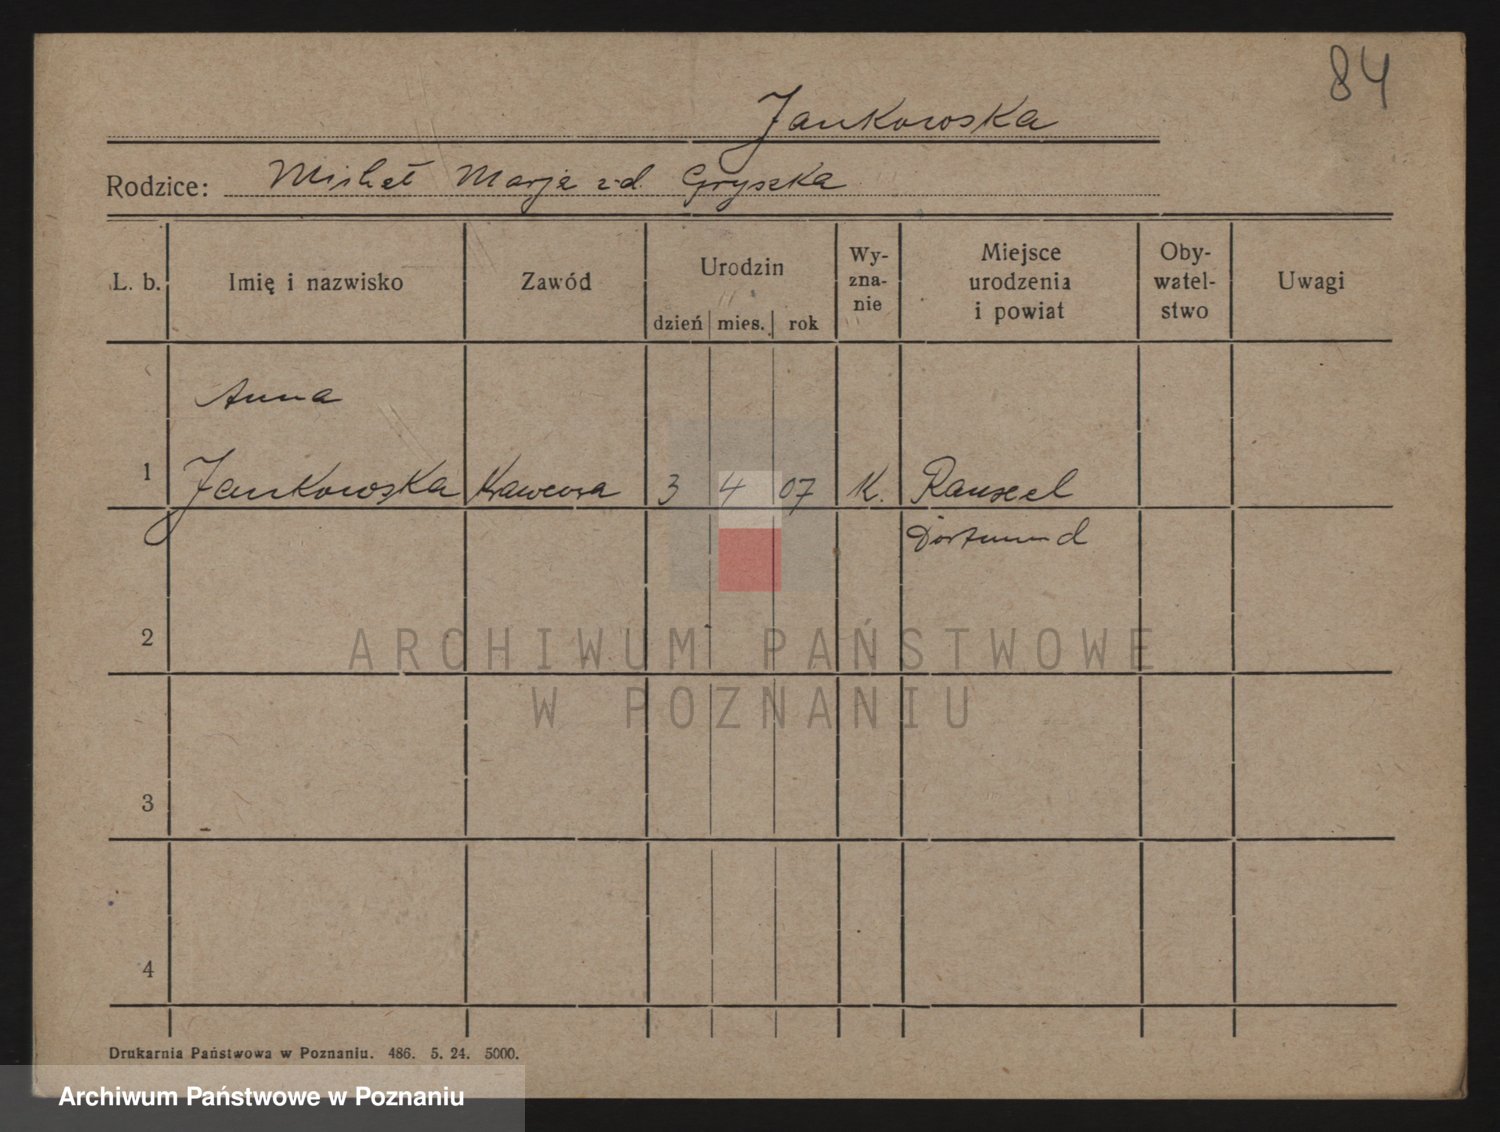 84
Jankowska
Rodzice: Michał Marja z d. Gryszka
L. b. Imię i nazwisko Zawód Urodzin dzień mies. rok Wy-zna-nie Miejsce urodzenia i powiat Oby-watel-stwo Uwagi
Anna
1 Jankowska Krawcowa 3 4 07 K. Rauxel
Dortmund
2
ARCHIWUM PAŃSTWOWE
W POZNANIU
3
4
Drukarnia Państwowa w Poznaniu. 486. 5. 24. 5000.
Archiwum Państwowe w Poznaniu